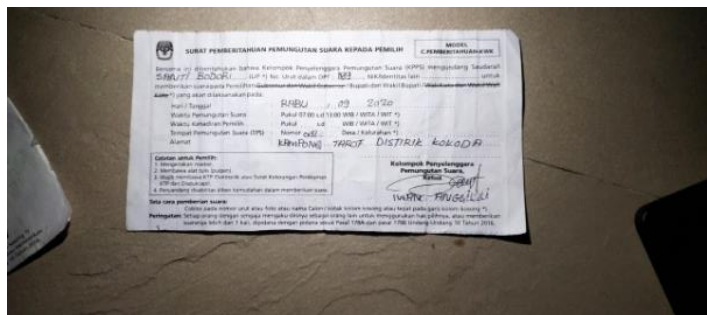 SURAT PEMBERITAHUAN PEMUNGUTAN SUARA KEPADA PEMILIH
MODEL
C.PEMBERITAHUAN-KWK
Bersama ini diberitahukan bahwa Kelompok Penyelenggara Pemungutan Suara (KPPS) mengundang Saudara/i
BODORI (L/P *) No. Urut dalam DPT: NIK/Identitas lain untuk
memberikan suara pada Pemilihan Gubernur dan Wakil Gubernur/Bupati dan Wakil Bupati/Walikota dan Wakil Wali
Kota *) yang akan dilaksanakan pada:
Hari / Tanggal : RABU , 09 2020
Waktu Pemungutan Suara : Pukul 07.00 s.d 13.00 WIB / WITA / WIT *)
Waktu Kehadiran Pemilih : Pukul s.d WIB / WITA / WIT *)
Tempat Pemungutan Suara (TPS) : Nomor Desa / Kelurahan *)
Alamat : KAMPONG TAROF DISTIRIK KOKODA
Catatan untuk Pemilih:
1. Mengenakan masker
2. Membawa alat tulis (pulpen)
3. Wajib membawa KTP Elektronik atau Surat Keterangan Perekaman
KTP dari Disdukcapil
4. Penyandang disabilitas diberi kemudahan dalam memberikan suara
Kelompok Penyelenggara
Pemungutan Suara,
Ketua
Tata cara pemberian suara:
Coblos pada nomor urut atau foto atau nama Calon / kotak kolom kosong atau tepat pada garis kolom kosong *).
Peringatan: Setiap orang dengan sengaja mengaku dirinya sebagai orang lain untuk menggunakan hak pilihnya, atau memberikan
suaranya lebih dari 1 kali, dipidana dengan pidana sesuai Pasal 178A dan pasal 178B Undang-Undang 10 Tahun 2016.